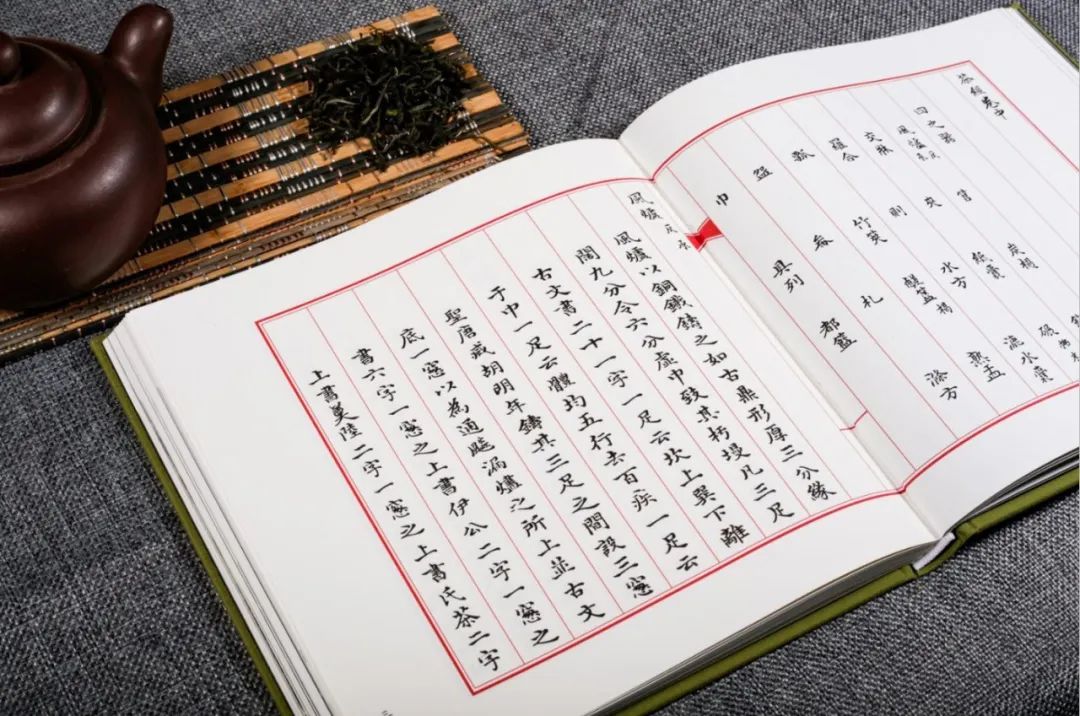 茶經卷中
四之器
風爐灰承 筥 炭檛
交牀 夾 紙囊 碾拂末
羅合 則 水方 漉水囊
瓢 竹筴 鹺簋揭 熟盂
盌 畚 札 滌方
巾 具列 都籃
風爐灰承
風爐以銅鐵鑄之如古鼎形厚三分緣
闊九分令六分虛中致其杇墁凡三足
古文書二十一字一足云坎上巽下離
于中一足云體均五行去百疾一足云
聖唐滅胡明年鑄其三足之間設三窻
底一窻以為通飈漏燼之所上並古文
書六字一窻之上書伊公二字一窻之
上書羮陸二字一窻之上書氏茶二字
三